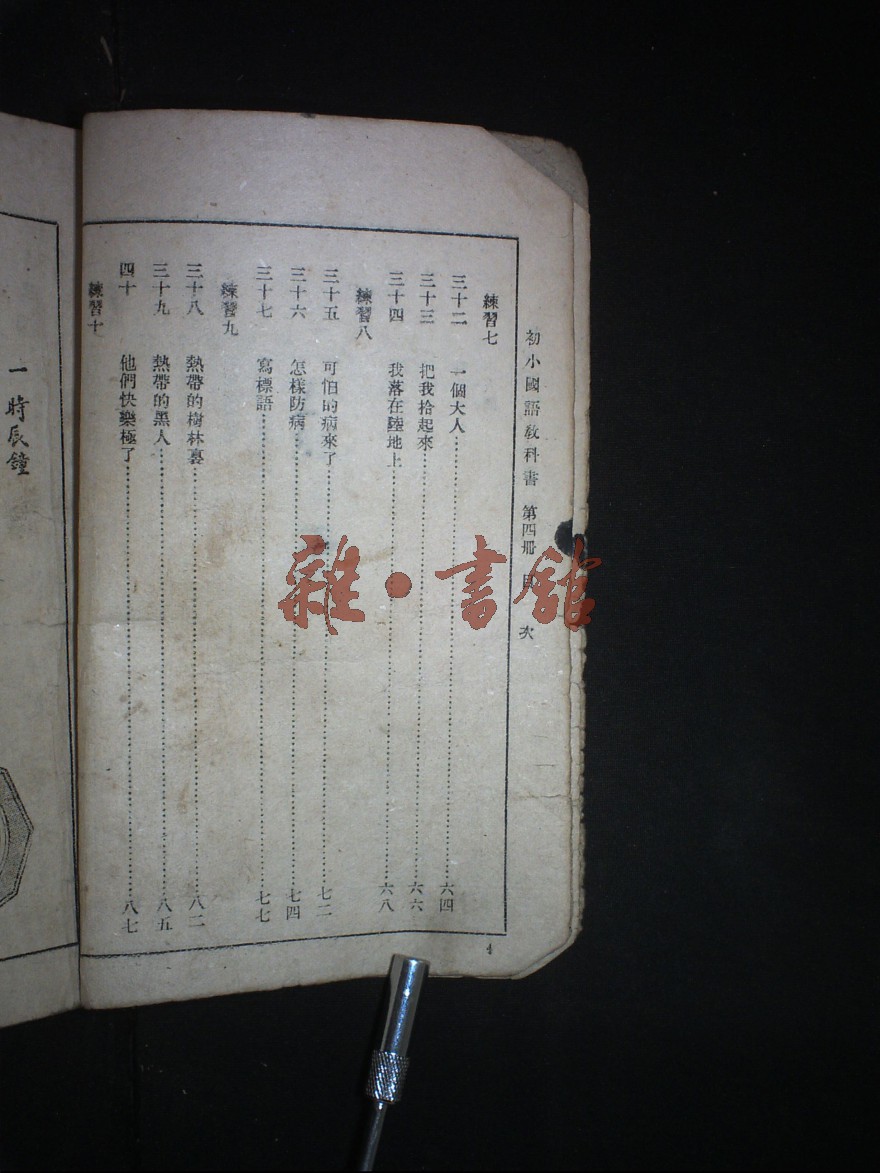 初小國語教科書 第四冊 目次
練習七
三十二 一個大人……六四
三十三 把我拾起來……六六
三十四 我落在陸地上……六八
練習八
三十五 可怕的病來了……七二
三十六 怎樣防病……七四
三十七 寫標語……七七
練習九
三十八 熱帶的樹林裏……八二
三十九 熱帶的黑人……八五
四十 他們快樂極了……八七
練習十
4
一 時辰鐘
雜·書館